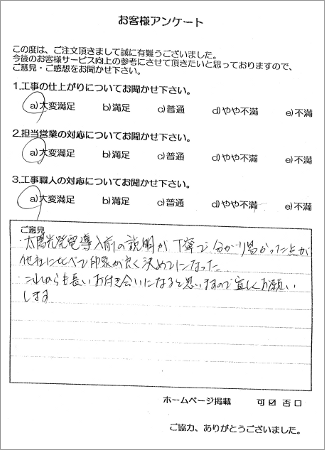 お客様アンケート
この度は、ご注文頂きまして誠に有難うございました。
今後のお客様サービス向上の参考にさせて頂きたいと思っておりますので、
ご意見・ご感想をお聞かせ下さい。
1.工事の仕上がりについてお聞かせ下さい。
a)大変満足 b)満足 c)普通 d)やや不満 e)不満
2.担当営業の対応についてお聞かせ下さい。
a)大変満足 b)満足 c)普通 d)やや不満 e)不満
3.工事職人の対応についてお聞かせ下さい。
a)大変満足 b)満足 c)普通 d)やや不満 e)不満
ご意見
太陽光発電導入前の説明が丁寧で分かり易かった点が
他社に比べて印象が良く決めてになった
これからも長いお付き合いになると思いますので宜しくお願い
します
ホームページ掲載 可☑ 否□
ご協力、ありがとうございました。